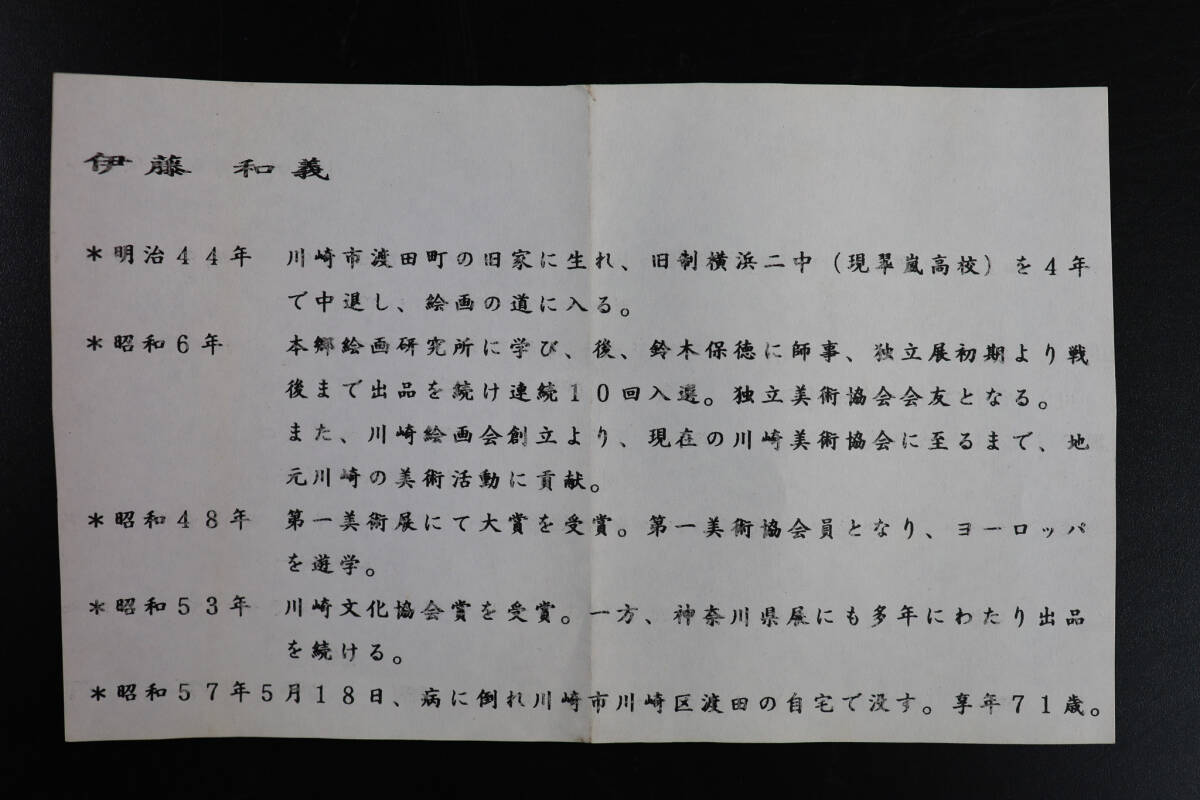 伊藤 和義
＊明治４４年 川崎市渡田町の旧家に生れ、旧制横浜二中（現翠嵐高校）を４年
で中退し、絵画の道に入る。
＊昭和６年 本郷絵画研究所に学び、後、鈴木保徳に師事、独立展初期より戦
後まで出品を続け連続１０回入選。独立美術協会会友となる。
また、川崎絵画会創立より、現在の川崎美術協会に至るまで、地
元川崎の美術活動に貢献。
＊昭和４８年 第一美術展にて大賞を受賞。第一美術協会員となり、ヨーロッパ
を遊学。
＊昭和５３年 川崎文化協会賞を受賞。一方、神奈川県展にも多年にわたり出品
を続ける。
＊昭和５７年５月１８日、病に倒れ川崎市川崎区渡田の自宅で没す。享年７１歳。